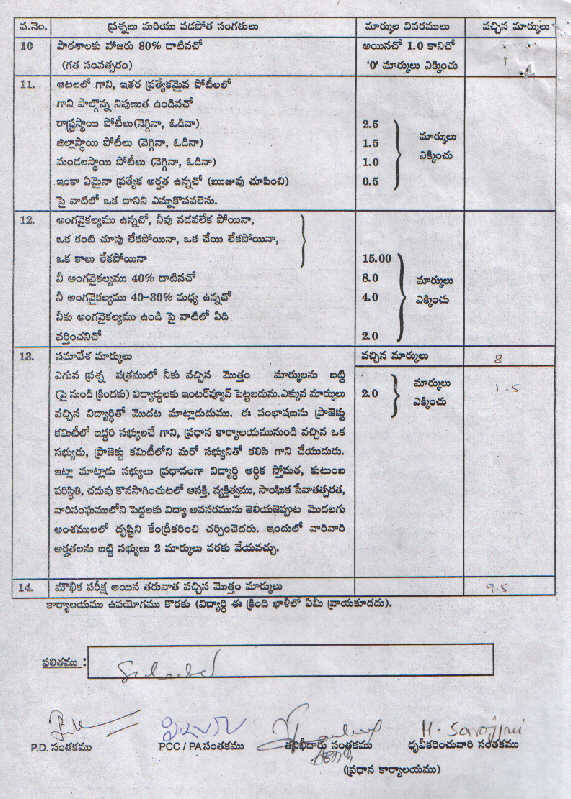 ప.నెం. ప్రశ్నలు మరియు వడపోత సంగతులు మార్కుల వివరములు వచ్చిన మార్కులు
10 పాఠశాలకు హాజరు 80% దాటినచో అయినచో 1.0 కానిచో
(గత సంవత్సరం) '0' మార్కులు ఎక్కించు
11. ఆటలలో గాని, ఇతర ప్రత్యేకమైన పోటీలలో
గాని పాల్గొన్న నిపుణుత ఉండినచో
రాష్ట్రస్థాయి పోటీలు(నెగ్గినా, ఓడినా) 2.5 మార్కులు
జిల్లాస్థాయి పోటీలు (నెగ్గినా, ఓడినా) 1.5 ఎక్కించు
మండలస్థాయి పోటీలు (నెగ్గినా, ఓడినా) 1.0
ఇంకా ఏమైనా ప్రత్యేక అర్హత ఉన్నచో (ఋజువు చూపించి) 0.5
పై వాటిలో ఒక దానిని ఎన్నుకొనవలెను.
12. అంగవైకల్యము ఉన్నచో, నీవు నడవలేక పోయినా,
ఒక కంటి చూపు లేకపోయినా, ఒక చేయి లేకపోయినా,
ఒక కాలు లేకపోయినా 15.00
నీ అంగవైకల్యము 40% దాటినచో 8.0 మార్కులు
నీ అంగవైకల్యము 40-36% మధ్య ఉన్నచో 4.0 ఎక్కించు
నీకు అంగవైకల్యము ఉండి పై వాటిలో ఏది
వర్తించనిచో 2.0
13. సమావేశ మార్కులు వచ్చిన మార్కులు 8
ఎగువ ప్రశ్న పత్రములో నీకు వచ్చిన మొత్తం మార్కులను బట్టి 2.0 మార్కులు 1.5
(పై నుండి క్రిందకు) విద్యార్థులకు ఇంటర్వ్యూవ్ పెట్టబడును.ఎక్కువ మార్కులు ఎక్కించు
వచ్చిన విద్యార్థితో మొదట మాట్లాడుదుము. ఈ సంభాషణను ప్రాజెక్టు
కమిటీలో ఇద్దరి సభ్యులచే గాని, ప్రధాన కార్యాలయమునుండి వచ్చిన ఒక
సభ్యుడు, ప్రాజెక్టు కమిటీలోని మరో సభ్యునితో కలిసి గాని చేయుదురు.
ఇట్లా మాట్లాడు సభ్యులు ప్రధానంగా విద్యార్థి ఆర్థిక స్తోమత, కుటుంబ
పరిస్థితి, చదువు కొనసాగించుటలో ఆసక్తి, వ్యక్తిత్వము, సాంఘిక సేవాతత్పరత,
వారిసంఘములోని పెద్దలకు విద్యా అవసరమును తెలియజెప్పుట మొదలగు
అంశములలో దృష్టిని కేంద్రీకరించి చర్చించెదరు. ఇందులో వారివారి
అర్హతలను బట్టి సభ్యులు 2 మార్కులు వరకు వేయవచ్చు.
14. మౌఖిక పరీక్ష అయిన తరువాత వచ్చిన మొత్తం మార్కులు 9.5
కార్యాలయము ఉపయోగము కొరకు (విద్యార్థి ఈ క్రింది ఖాళీలో ఏమీ వ్రాయకూడదు).
ఫలితము : Selected
H. Sarojini
P.D. సంతకము PCC / PA సంతకము తనిఖీదారు సంతకము ధృవీకరించువారి సంతకము
(ప్రధాన కార్యాలయము)